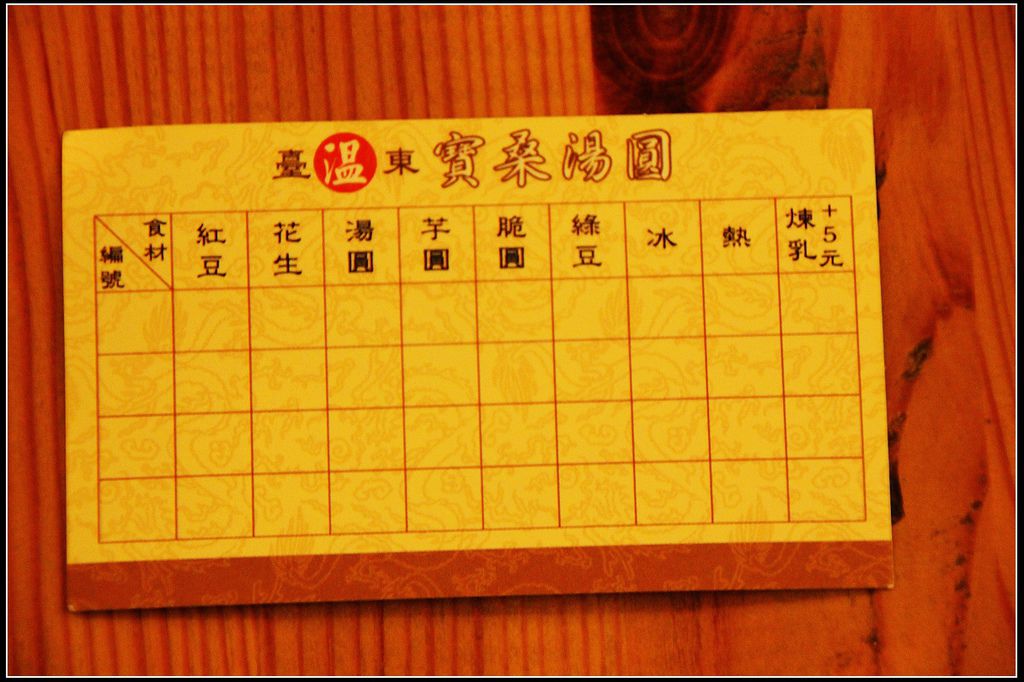 臺溫東寶桑湯圓
食材
編號
紅豆
花生
湯圓
芋圓
脆圓
綠豆
冰
熱
煉乳
+5元